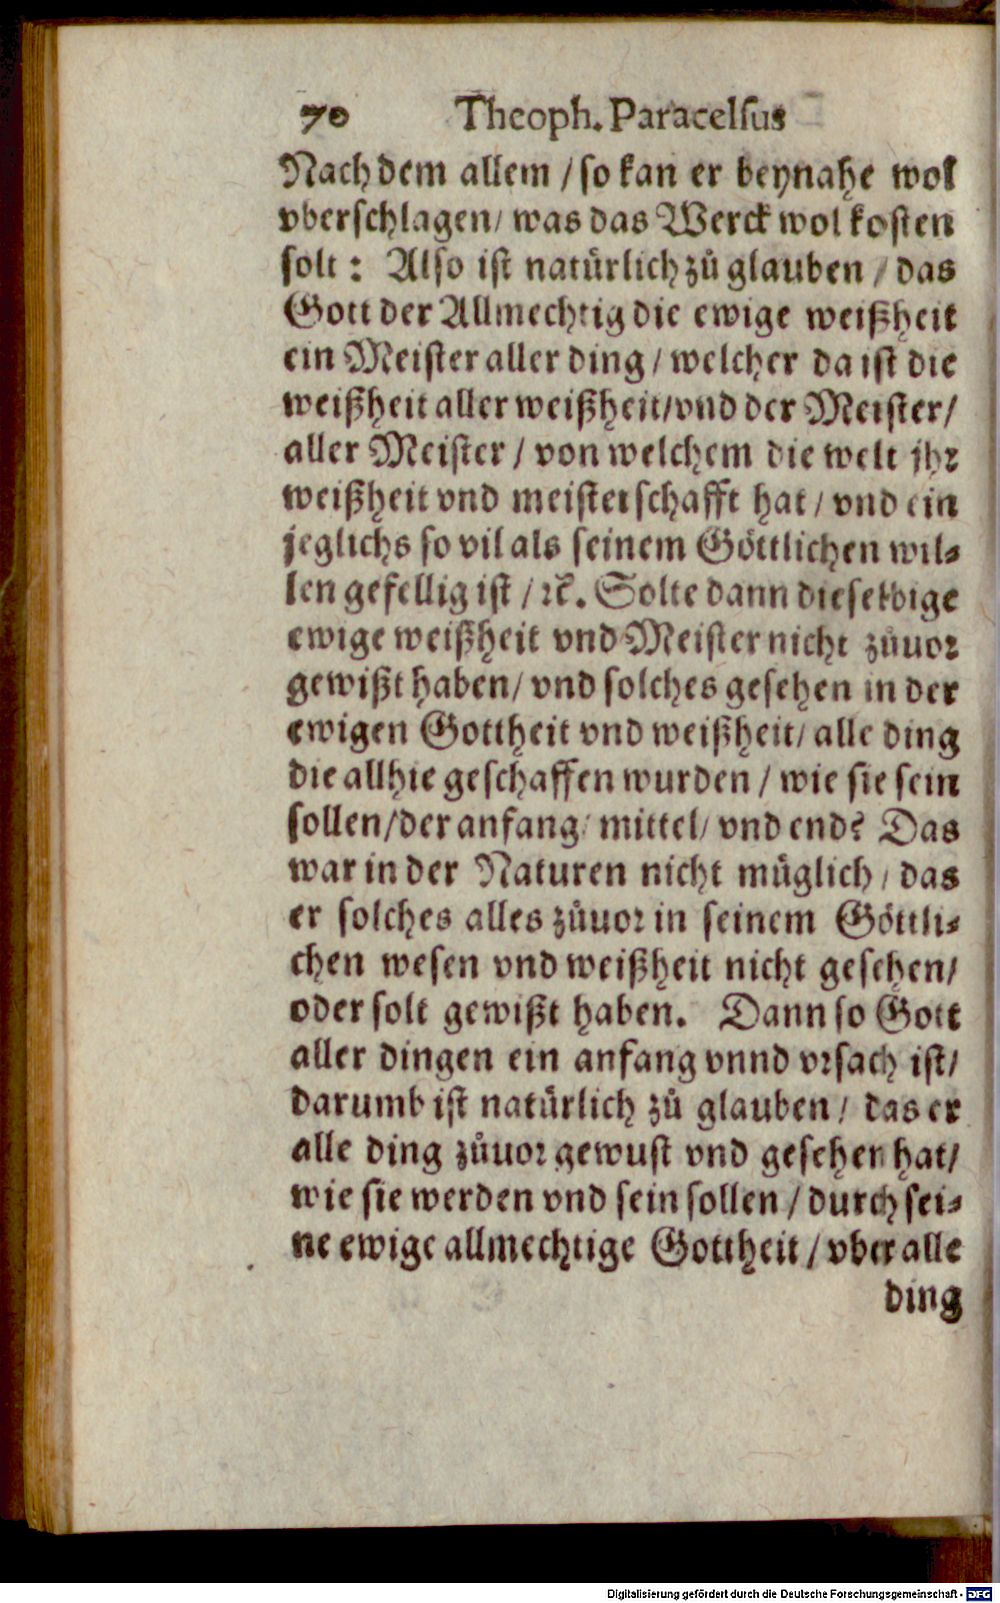 70 Theoph. Paracelsus
Nach dem allem / so kan er beynahe wol
vberschlagen / was das Werck wol kosten
solt : Also ist natürlich zů glauben / das
Gott der Allmechtig die ewige weißheit
ein Meister aller ding / welcher da ist die
weißheit aller weißheit / vnd der Meister /
aller Meister / von welchem die welt jhr
weißheit vnd meisterschafft hat / vnd ein
jeglichs so vil als seinem Göttlichen wil⸗
len gefellig ist / ꝛc. Solte dann dieselbige
ewige weißheit vnd Meister nicht zůuor
gewißt haben / vnd solches gesehen in der
ewigen Gottheit vnd weißheit / alle ding
die allhie geschaffen wurden / wie sie sein
sollen / der anfang / mittel / vnd end? Das
war in der Naturen nicht müglich / das
er solches alles zůuor in seinem Göttli⸗
chen wesen vnd weißheit nicht gesehen /
oder solt gewißt haben. Dann so Gott
aller dingen ein anfang vnnd vrsach ist /
darumb ist natürlich zů glauben / das er
alle ding zůuor gewust vnd gesehen hat /
wie sie werden vnd sein sollen / durch sei⸗
ne ewige allmechtige Gottheit / vber alle
ding
Digitalisierung gefördert durch die Deutsche Forschungsgemeinschaft - DFG